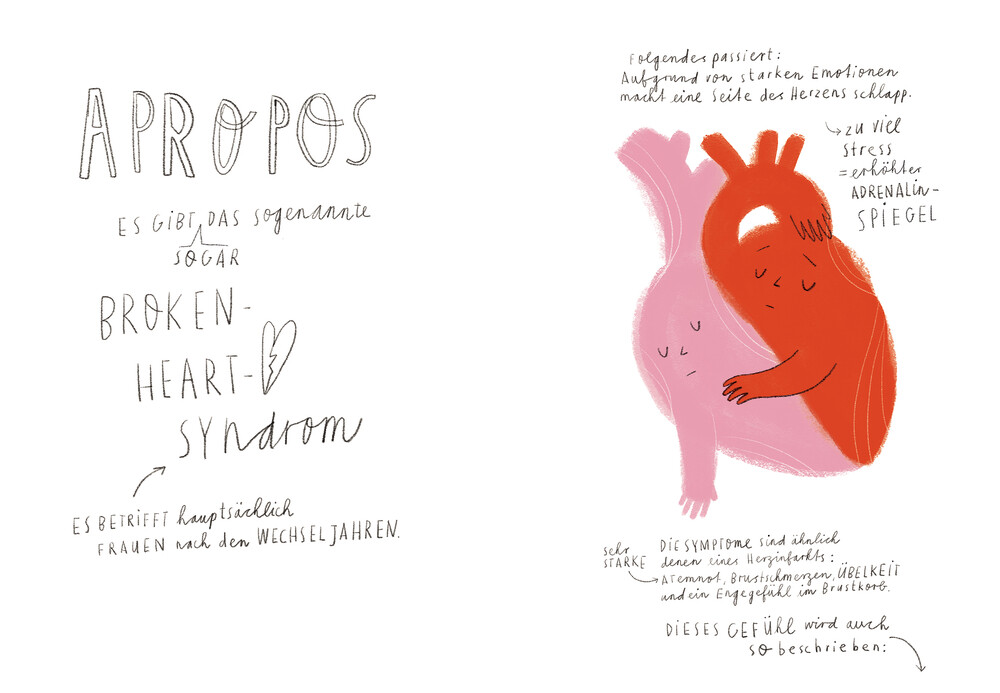 APROPOS
ES GIBT DAS sogenannte
SOGAR
BROKEN-
HEART-
SYndrom
ES BETRIFFT hauptsächlich
FRAUEN nach den WECHSELJAHREN.
Folgendes passiert:
Aufgrund von starken Emotionen
macht eine Seite des Herzens schlapp.
zu viel
Stress
= erhöhter
ADRENALIN-
SPIEGEL
sehr
STARKE
DIE SYMPTOME sind ähnlich
denen eines Herzinfarkts:
Atemnot, Brustschmerzen, ÜBELKEIT
und ein Engegefühl im Brustkorb.
DIESES GEFÜHL wird auch
so beschrieben: